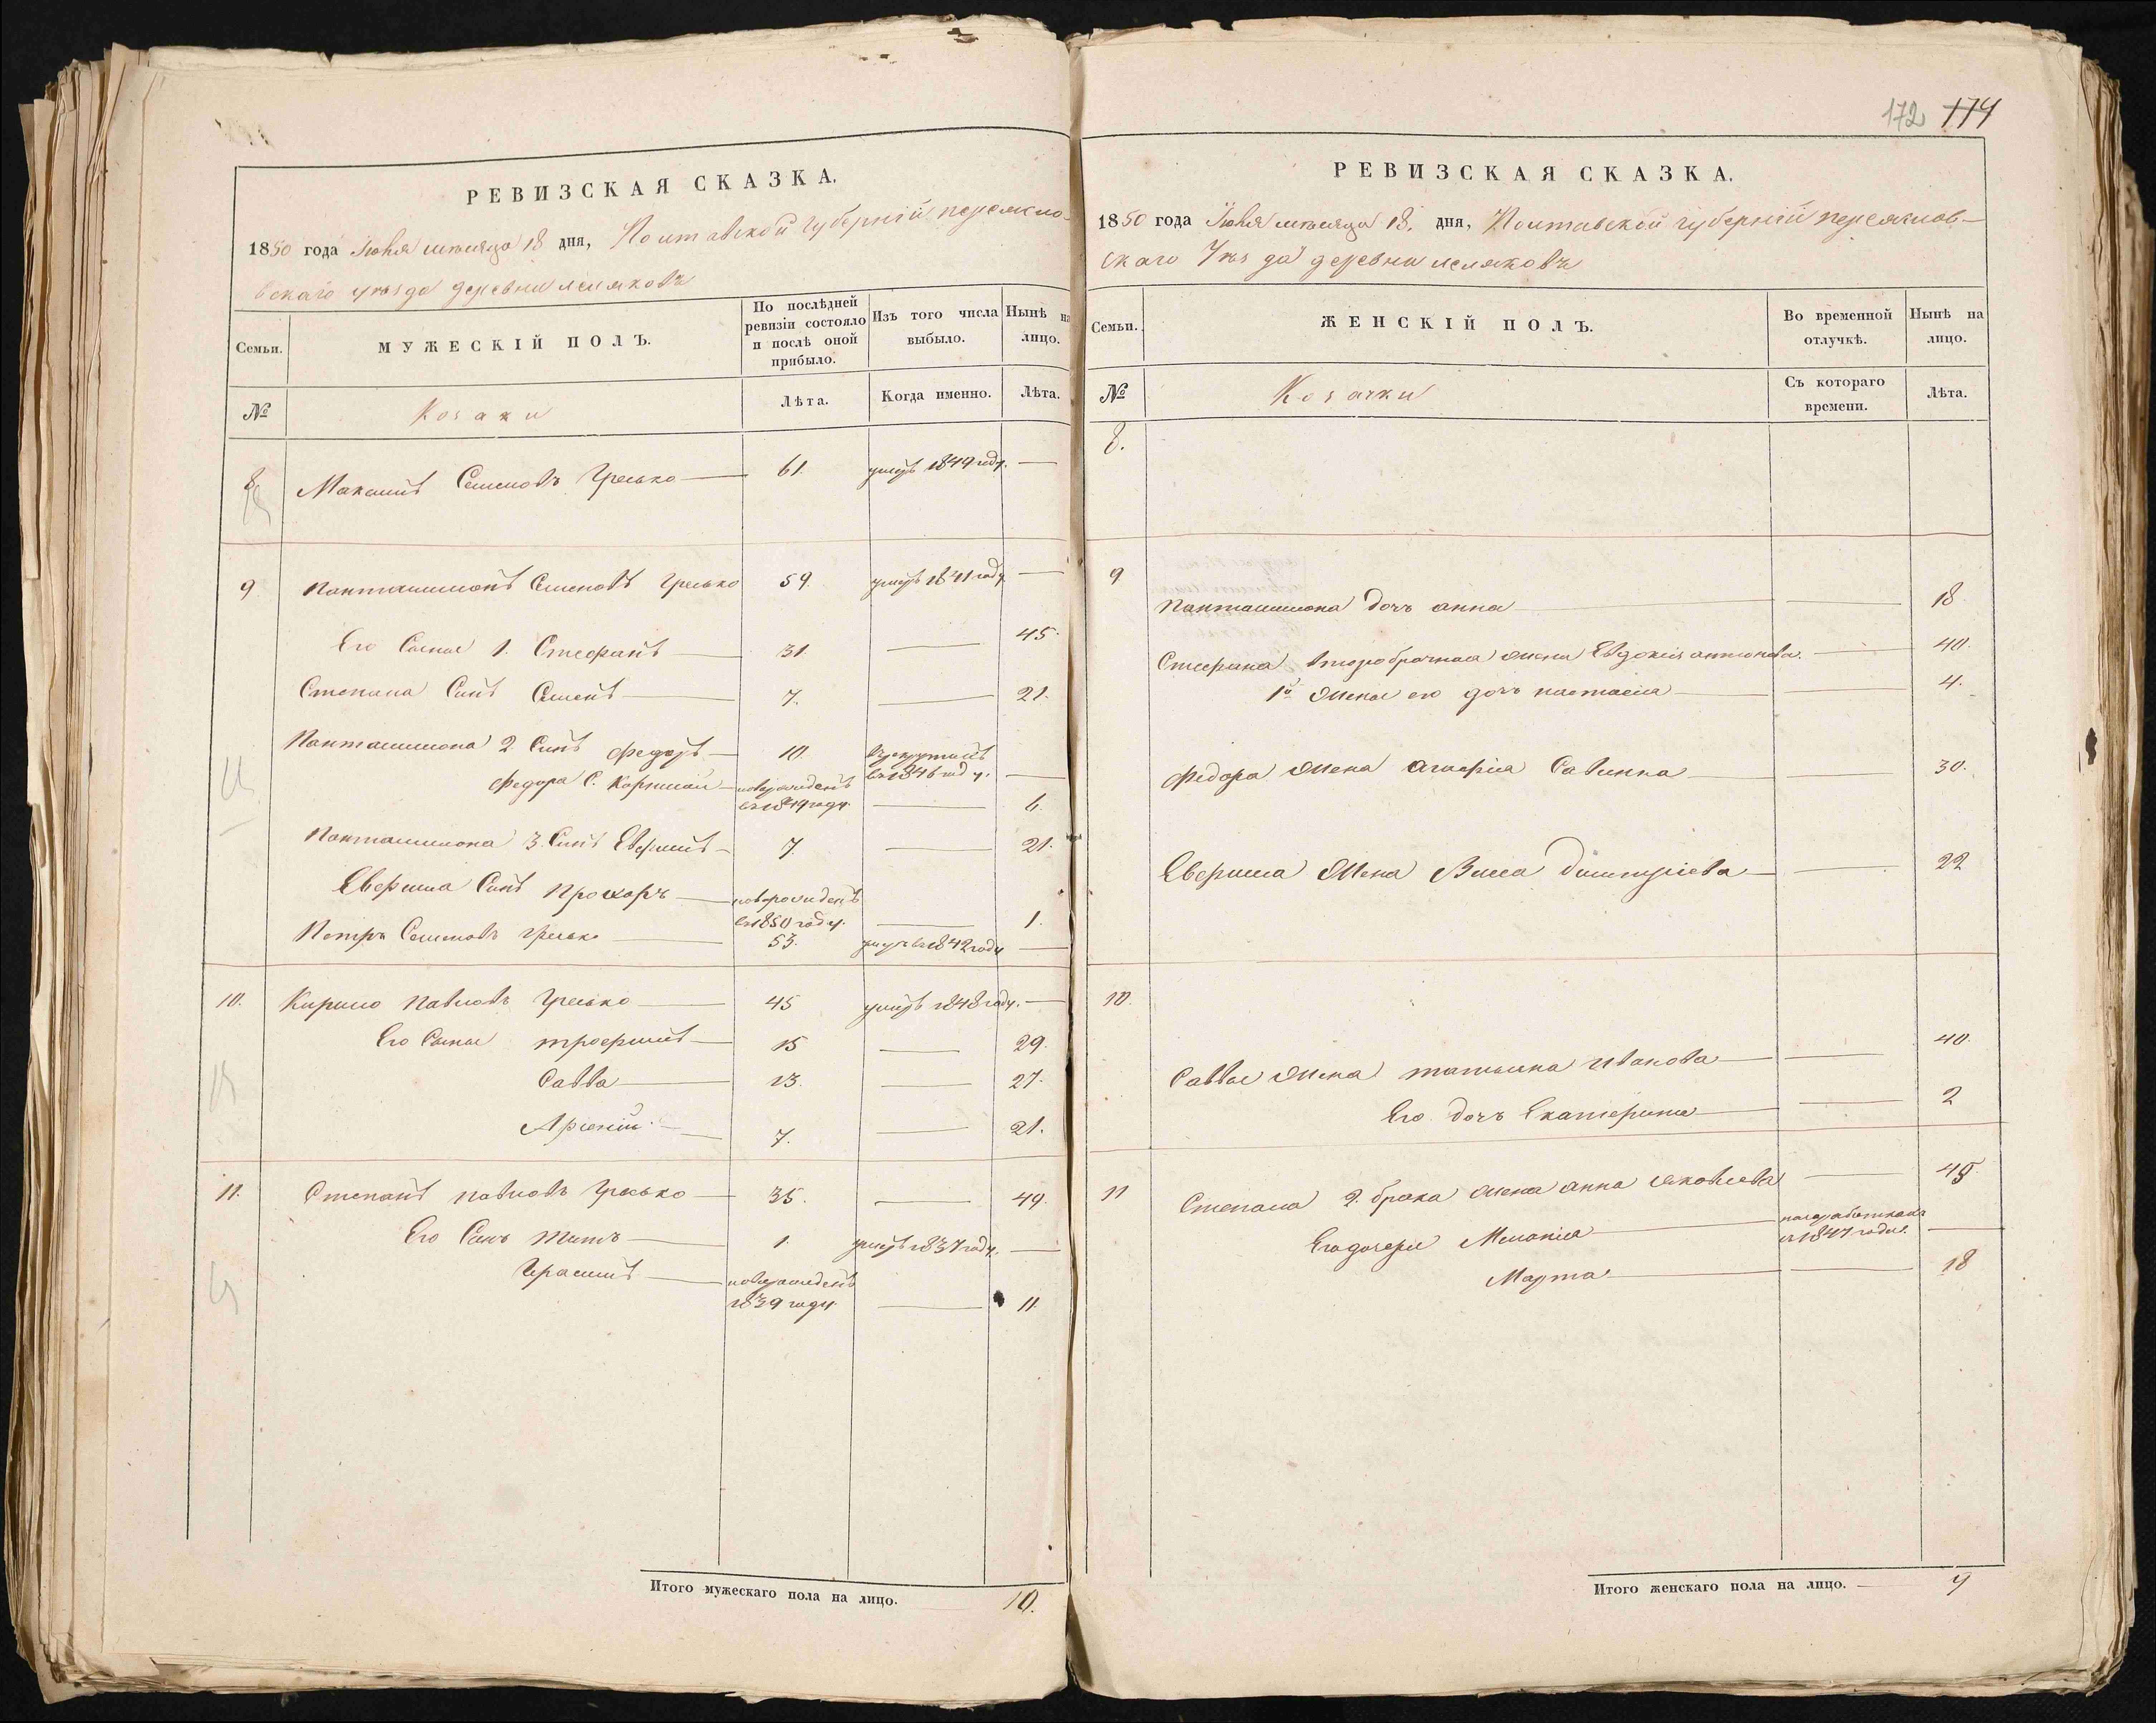 РЕВИЗСКАЯ СКАЗКА.
1850 года Іюня месяца 18 дня, Полтавской губерніи переясло-
вскаго уѣзда деревни лемяковъ
Семьи.
МУЖЕСКІЙ ПОЛЪ.
По послѣдней ревизіи состояло и послѣ оной прибыло.
Изъ того числа выбыло.
Нынѣ на лицо.
№
Козаки
Лѣта.
Когда именно.
Лѣта.
8 Максимъ Семеновъ Гресько 61. умеръ 1849 году.
9 Пантилимонъ Семеновъ Гресько 59. умеръ 1841 году
Его Сыны 1. Стефанъ 31 45.
Степана Синъ Семенъ 7. 21.
Пантилимона 2 Синъ Федоръ 10. въ рекруты въ 1846 году.
Федора С. Корнилий новорожденъ въ 1844 году. 6.
Пантилимона 3. Синъ Евфимъ 7. 21.
Евфима Синъ Прохоръ новорожденъ въ 1850 году. 1.
Петръ Семеновъ Гресько 53. умеръ въ 1842 году
10. Кирило Павловъ Гресько 45 умеръ 1848 году.
Его Сыны трофимъ 15 29.
Савва 13. 27.
Арсеній 7. 21.
11. Степанъ павловъ Гресько 35. 49.
Его Синъ Титъ 1. умеръ 1837 году.
Герасимъ новорожденъ 1839 году. 11.
Итого мужескаго пола на лицо. 10.
172 174
РЕВИЗСКАЯ СКАЗКА.
1850 года Іюня месяца 18. дня, Полтавской губерніи переяслов-
скаго Уѣзда деревни лемяковъ
Семьи.
ЖЕНСКІЙ ПОЛЪ.
Во временной отлучкѣ.
Нынѣ на лицо.
№
Козачки
Съ котораго времени.
Лѣта.
8.
9
Пантилимона дочъ анна 18
Стефана второбрачная жена Евдокія антонова. 40.
1й жены его дочъ настасія 4.
Федора жена Агафія Савина 30.
Евфима жена Васса димитріева 22
10.
Саввы жена татьяна Иванова 40.
Его дочъ Екатерина 2
11 Степана 2. брака жена анна яковлева 45.
Его дочери Меланія на заработкахъ съ 1847 года.
Марта 18
Итого женскаго пола на лицо. 9